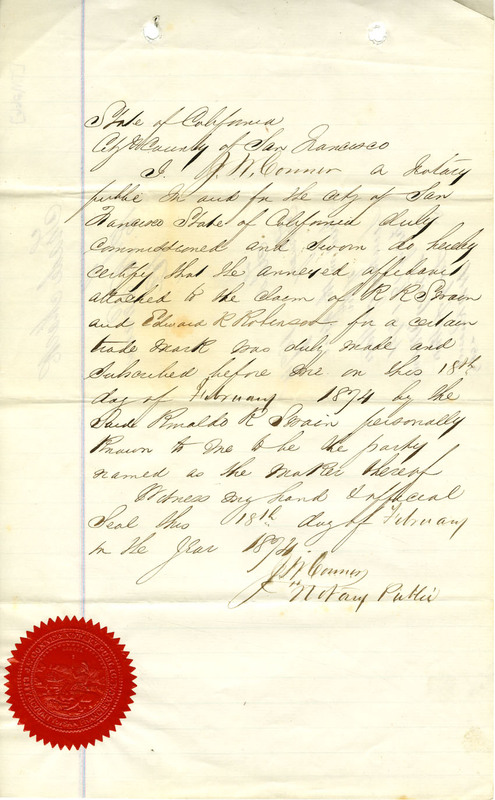 State of California
City & County of San Francisco
I. J. W. Connor a Notary
public in and for the city of San
Francisco State of California duly
commissioned and sworn do hereby
certify that the annexed affidavit
attached to the claim of R R Swain
and Edward R Robinson for a certain
trade mark was duly made and
subscribed before me on this 18th
day of February 1874 by the
said Rinaldo R Swain personally
known to me to be the party
named as the maker thereof
Witness my hand & official
Seal this 18th day of February
in the year 1874.
J W Connor
Notary Public